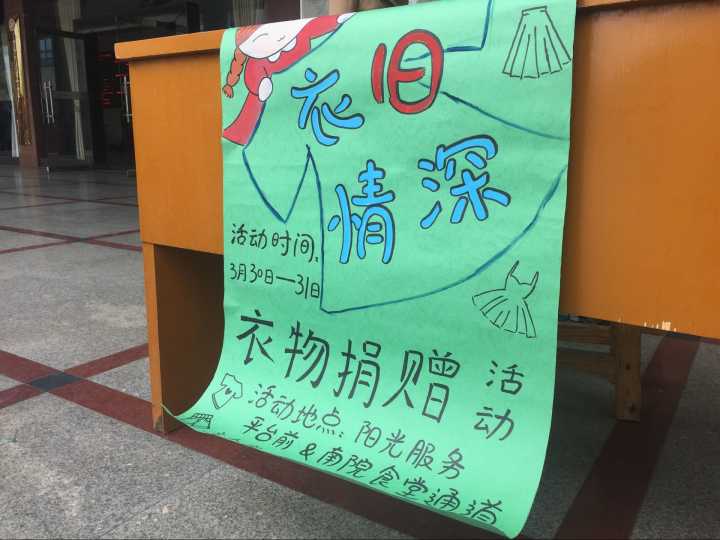 衣旧
情深
活动时间:
3月30日—31日
衣物捐赠
活动
活动地点:阳光服务
平台前&南院食堂通道